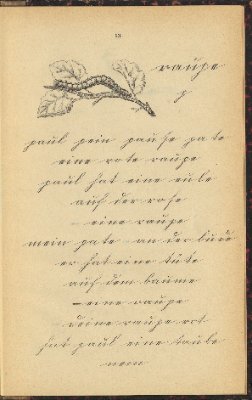 13.
raupe
p
paul pein pau se pate
eine rote raupe
paul hat eine eule
auf der rose
– eine raupe
mein pate – an der bude
er hat eine tüte
auf dem baume
– eine raupe
– deine raupe rot
hat paul eine taube
nein